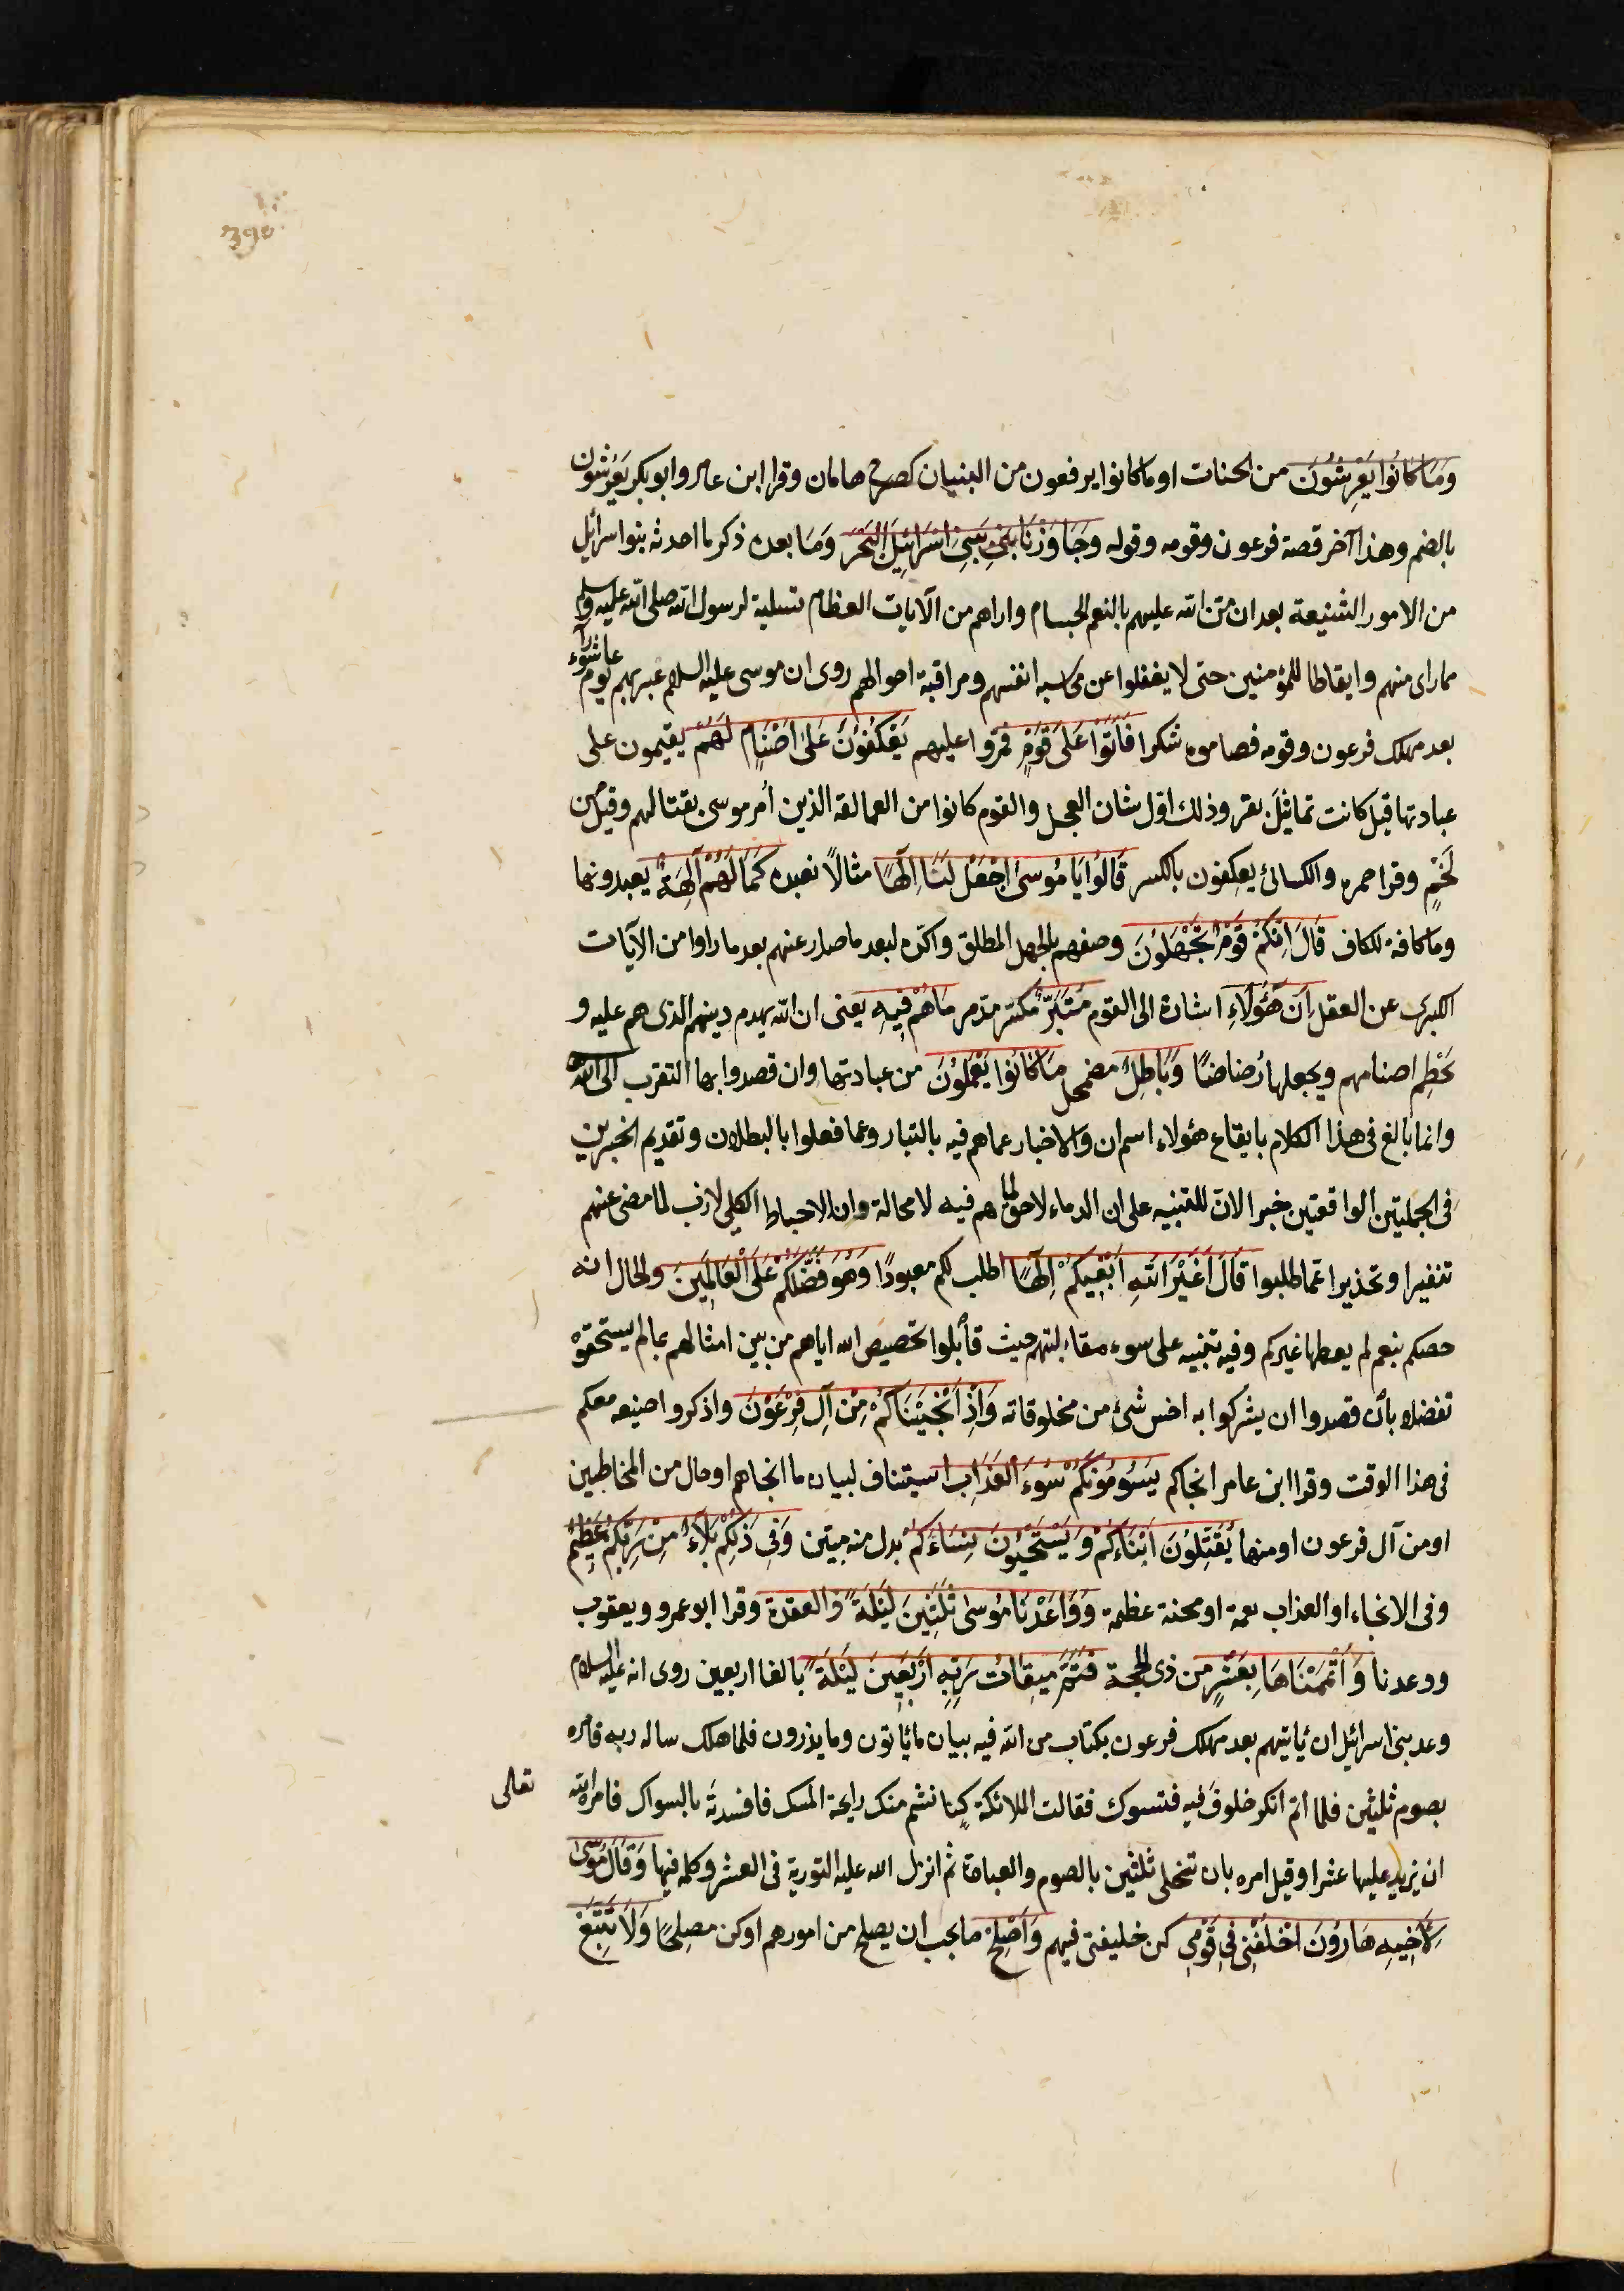 390
وَمَا كَانُوا يَعْرِشُونَ من الجنات او ما كانوا يرفعون من البنيان كصرح هامان وقرا ابن عامر وابو بكر يَعْرُشُون
بالضم وهذا آخر قصة فرعون وقومه وقوله وَجَاوَزْنَا بِبَنِي اسْرَائِيلَ الْبَحْرَ وَمَا بعده ذكر ما احدثه بنوا اسرائيل
من الامور الشنيعة بعد ان مَنّ الله عليهم بالنعم الجسام واراهم من الآيات العظام تسلية لرسول الله صلى الله عليه وسلم
مما راى منهم وايقاظا للمؤمنين حتى لا يغفلوا عن محاسبة انفسهم ومراقبة احوالهم روى ان موسى عليه السلام عبر بهم يوم عاشوراء
بعد مهلك فرعون وقومه فصاموه شكرا فَاَتَوْا عَلَى قَوْمٍ فمرّوا عليهم يَعْكُفُونَ عَلَى اَصْنَامٍ لَهُمْ يقيمون على
عبادتها قيل كانت تماثيلَ بقر وذلك اول شان العجل والقوم كانوا من العمالقة الذين اُمر موسى بقتالهم وقيل من
لَخْمٍ وقرا حمزه والكسائى يعكِفون بالكسر قَالُوا يَا مُوسَى اجْعَلْ لَنَا اِلَهًا مثالاً نعبده كَمَا لَهُمْ آلِهَةٌ يعبدونها
وما كافة للكاف قَالَ اِنَّكُمْ قَوْمٌ تَجْهَلُونَ وصفهم بالجهل المطلق واكّده لبعد ما صدر عنهم بعد ما راوا من الآيات
الكبرى عن العقل اِنَّ هَؤُلَاءِ اشارة الى القوم مُتَبَّرٌ مكسّر مدّمر مَا هُمْ فِيهِ يعنى ان الله يهدم دينهم الذى هم عليه و
يَحْطِم اصنامهم ويجعلها رُضاضًا وَبَاطِلٌ مضمحل مَا كَانُوا يَعْمَلُونَ من عبادتها وان قصدوا بها التقرب الى الله
وانما بالغ فى هذا الكلام بايقاع هؤلاء اسم ان والاخبار عما هم فيه بالتبار وعما فعلوا بالبطلان وتقديم الخبرين
فى الجملتين الواقعتين خبر الانّ للتنبيه على ان الدمار لاحق لما هم فيه لا محالة وان الاحباط الكلى لازب لما مضى عنهم
تنفيرا وتحذيرا عمّا طلبوا قَالَ اَغَيْرَ اللهِ اَبْغِيكُمْ اِلَهًا اطلب لكم معبودًا وَهُوَ فَضَّلَكُمْ عَلَى الْعَالَمِينَ والحال انه
خصكم بنعم لم يعطها غيركم وفيه تنبيه على سوء مقابلتهم حيث قابلوا تخصيص الله اياهم من بين امثالهم بما لم يستحقوه
تفضلا بأن قصدوا ان يشركوا به اخس شئ من مخلوقاته وَاِذْ اَنْجَيْنَاكُمْ مِنْ آلِ فِرْعَوْنَ واذكروا صنيعه معكم
فى هذا الوقت وقرا ابن عامر انجاكم يَسُومُونَكُمْ سُوءَ الْعَذَابِ استيناف لبيان ما انجاهم او حال من المخاطبين
او من آل فرعون او منهما يُقَتِّلُونَ اَبْنَاءَكُمْ وَيَسْتَحْيُونَ نِسَاءَكُمْ بدل منه مبيّن وَفِى ذَلِكُمْ بَلَاءٌ مِنْ رَبِّكُمْ عَظِيمٌ
وفى الانجاء او العذاب نعمة او محنة عظيمة وَوَاعَدْنَا مُوسَى ثَلَثِينَ لَيْلَةً ذا القعدة وقرا ابو عمرو ويعقوب
ووعدنا وَاَتْمَمْنَاهَا بِعَشْرٍ من ذى الحجة فَتَمَّ مِيقَاتُ رَبِّهِ اَرْبَعِينَ لَيْلَةً بالغا اربعين روى انه عليه السلام
وعد بنى اسرائيل ان يأتيهم بعد مهلك فرعون بكتاب من الله فيه بيان ما يأتون وما يذرون فلما هلك سال ربه فامره
بصوم ثلثين فلما اتمّ انكر خلوفَ فيه فتسوك فقالت الملائكة كنا نشم منك رايحة المسك فافسدتَه بالسواك فامره الله تعالى
ان يزيد عليها عشرا وقيل امره بان تتخلى ثلثين بالصوم والعبادة ثم انزل الله عليه التورية فى العشر وكلمه فيها وَقَالَ مُوسَى
لِاَخِيهِ هَارُونَ اخْلُفْنِى فِى قَوْمِى كن خليفتى فيهم وَاَصْلِحْ ما يجب ان يصلح من امورهم او كن مصلحًا وَلَا تَتَّبِعْ